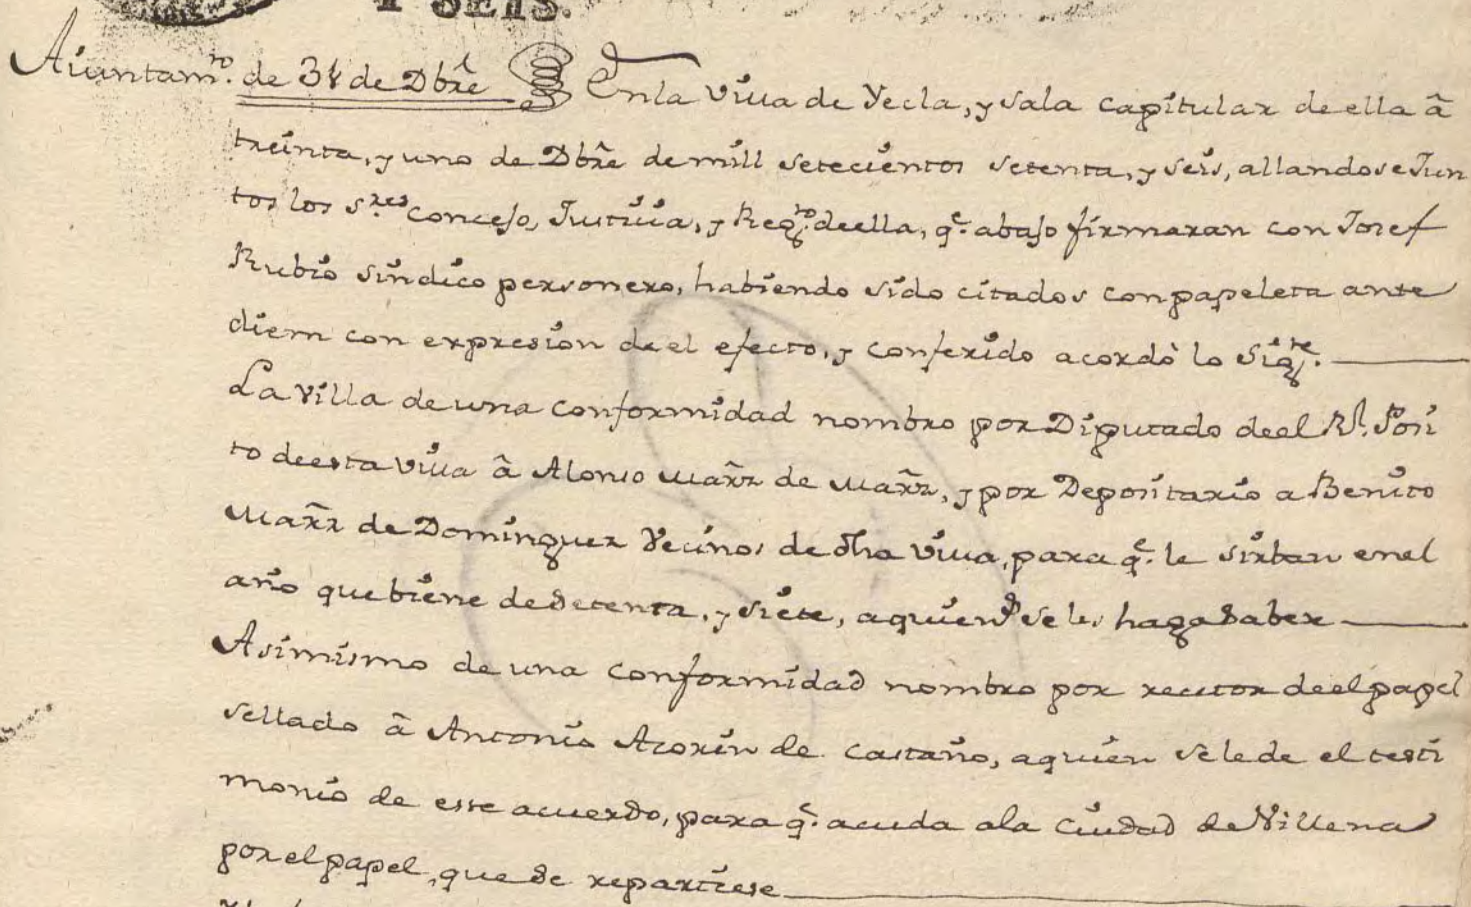 Y SEIS.
Aiuntam.to de 31 de Dbre En la Villa de Yecla, y sala capitular de ella â
treinta, y uno de Dbre de mill setecientos setenta, y seis, allandose Jun
tos los s.res Concejo, Justicia, y Reg.to de ella, q.e abajo firmaran con Josef
Rubio sindico personero, habiendo sido citados con papeleta ante
diem con expresion de el efecto, y conferido acordò lo sig.te
La Villa de una conformidad nombro por Diputado de el Rl. Posi
to de esta Villa â Alonso Marz de Marz, y por Depositario a Benito
Marz de Dominguez Vecinos de dha Villa, para q.e le sirban en el
año que biene de setenta, y siete, a quienes se les haga saber
Asimismo de una conformidad nombro por recetor de el papel
sellado â Antonio Azorin de Castaño, a quien se le de el testi
monio de este acuerdo, para q.e acuda a la ciudad de Villena
por el papel, que se repartiese